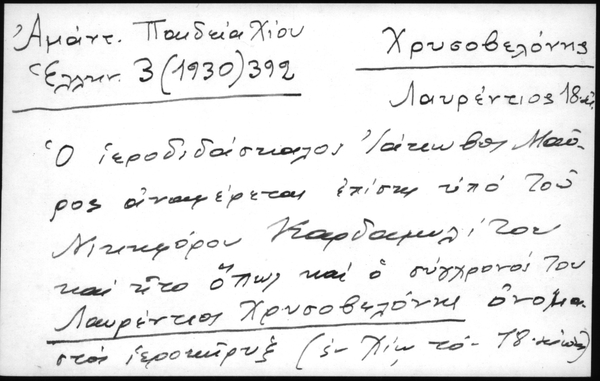 Ἀμάντ. Παιδεία Χίου
Ἑλλην. 3 (1930) 392
Χρυσοβελόνης
Λαυρέντιος 18 αἰ.
Ὁ ἱεροδιδάσκαλος Ἰάκωβος Μαῦ-
ρος ἀναφέρεται ἐπίσης ὑπό τοῦ
Νικηφόρου Καρδαμυλίτου
καί ἦτο ὅπως καί ὁ σύγχρονός του
Λαυρέντιος Χρυσοβελόνης ὀνομα-
στός ἱεροκῆρυξ (ἐν Χίῳ τό 18